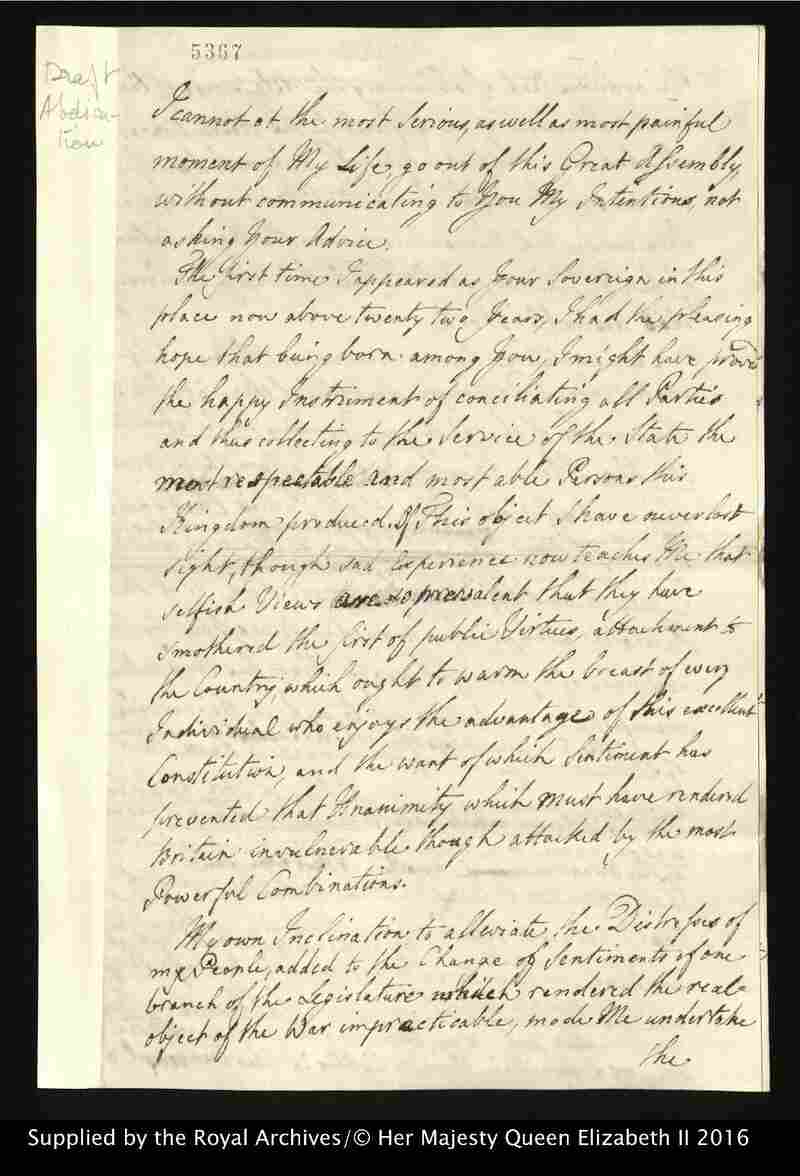 5367
Draft
Abdica-
tion
I cannot at the most serious, as well as most painful
moment of My Life, go out of this Great Assembly,
without communicating to You My Intentions, not
asking Your Advice.
The first time I appeared as Your Sovereign in this
place now above twenty two Years, I had the pleasing
hope that being born among You, I might have prov'd
the happy Instrument of conciliating all Parties
and thus collecting to the Service of the State the
most respectable and most able Persons this
Kingdom produced. Of This object I have never lost
sight, though sad Experience now teaches Me that
selfish Views are so prevalent that they have
smothered the first of public Virtues, attachment to
the Country, which ought to warm the breast of every
Individual who enjoys the advantages of this excellent
Constitution, and the want of which Sentiment has
prevented that Unanimity which must have rendered
Britain invulnerable though attacked by the most
Powerful Combinations.
My own Inclination to alleviate the Distresses of
my People, added to the Change of Sentiments of one
branch of the Legislature which rendered the real
object of the War impracticable, made Me undertake
the
Supplied by the Royal Archives/© Her Majesty Queen Elizabeth II 2016